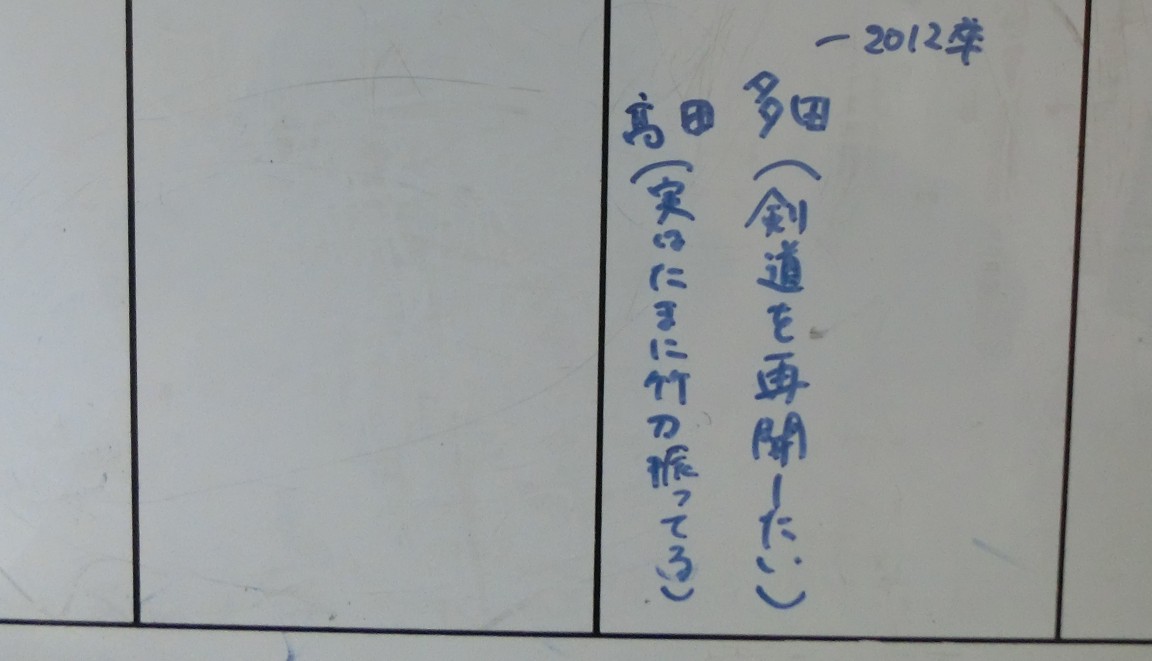 ー2012卒
多田(剣道を再開したい)
高田(実はたまに竹刀振ってる)